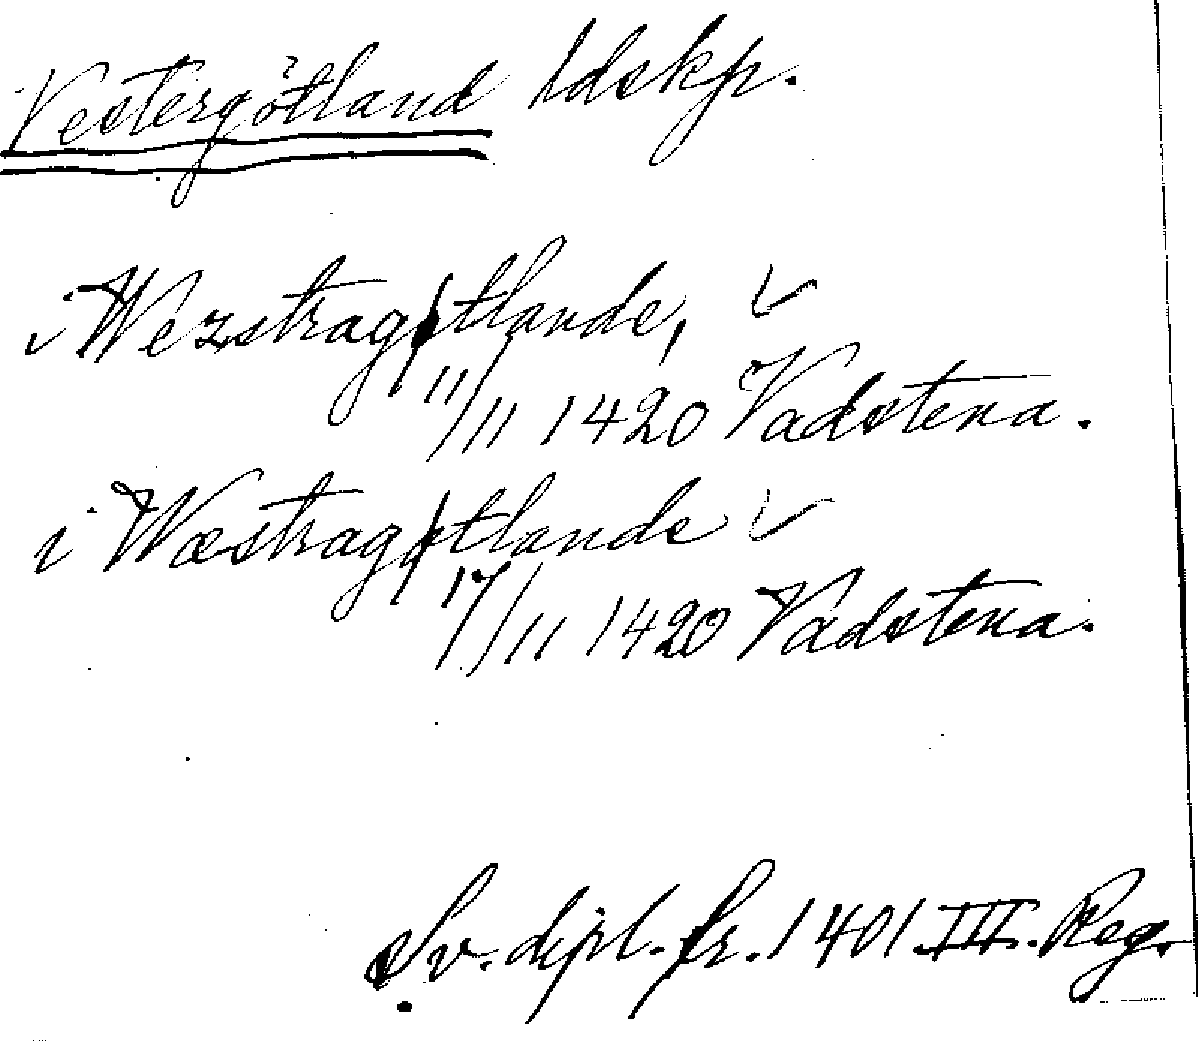 Vestergötland ldskp.
i Wezstragøtlande, ✓
11/11 1420 Vadstena.
i Wæstragøtlande ✓
17/11 1420 Vadstena.
Sv. dipl. fr. 1401 III. Reg.